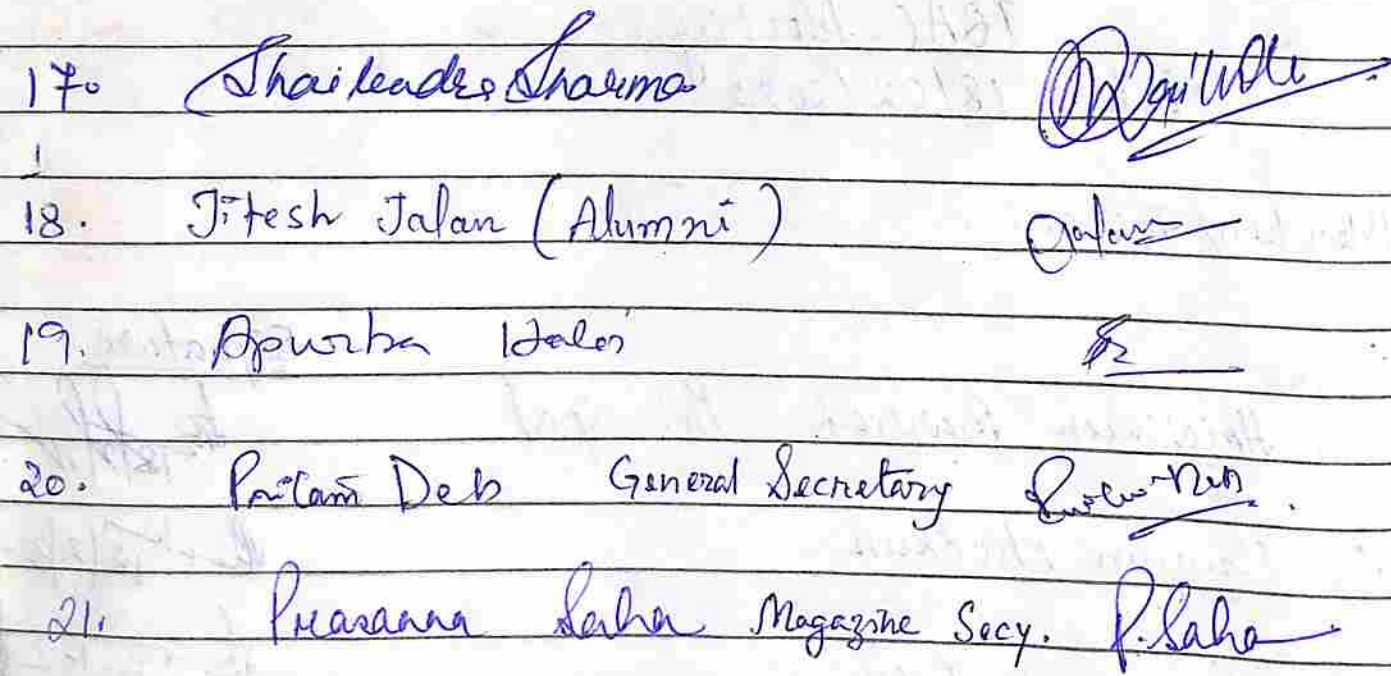 17. Shailendra Sharma
18. Jitesh Jalan (Alumni) Jalan
19. Apurba
20. Pritam Deb General Secretary
21. Prasanna Saha Magazine Secy. P. Saha